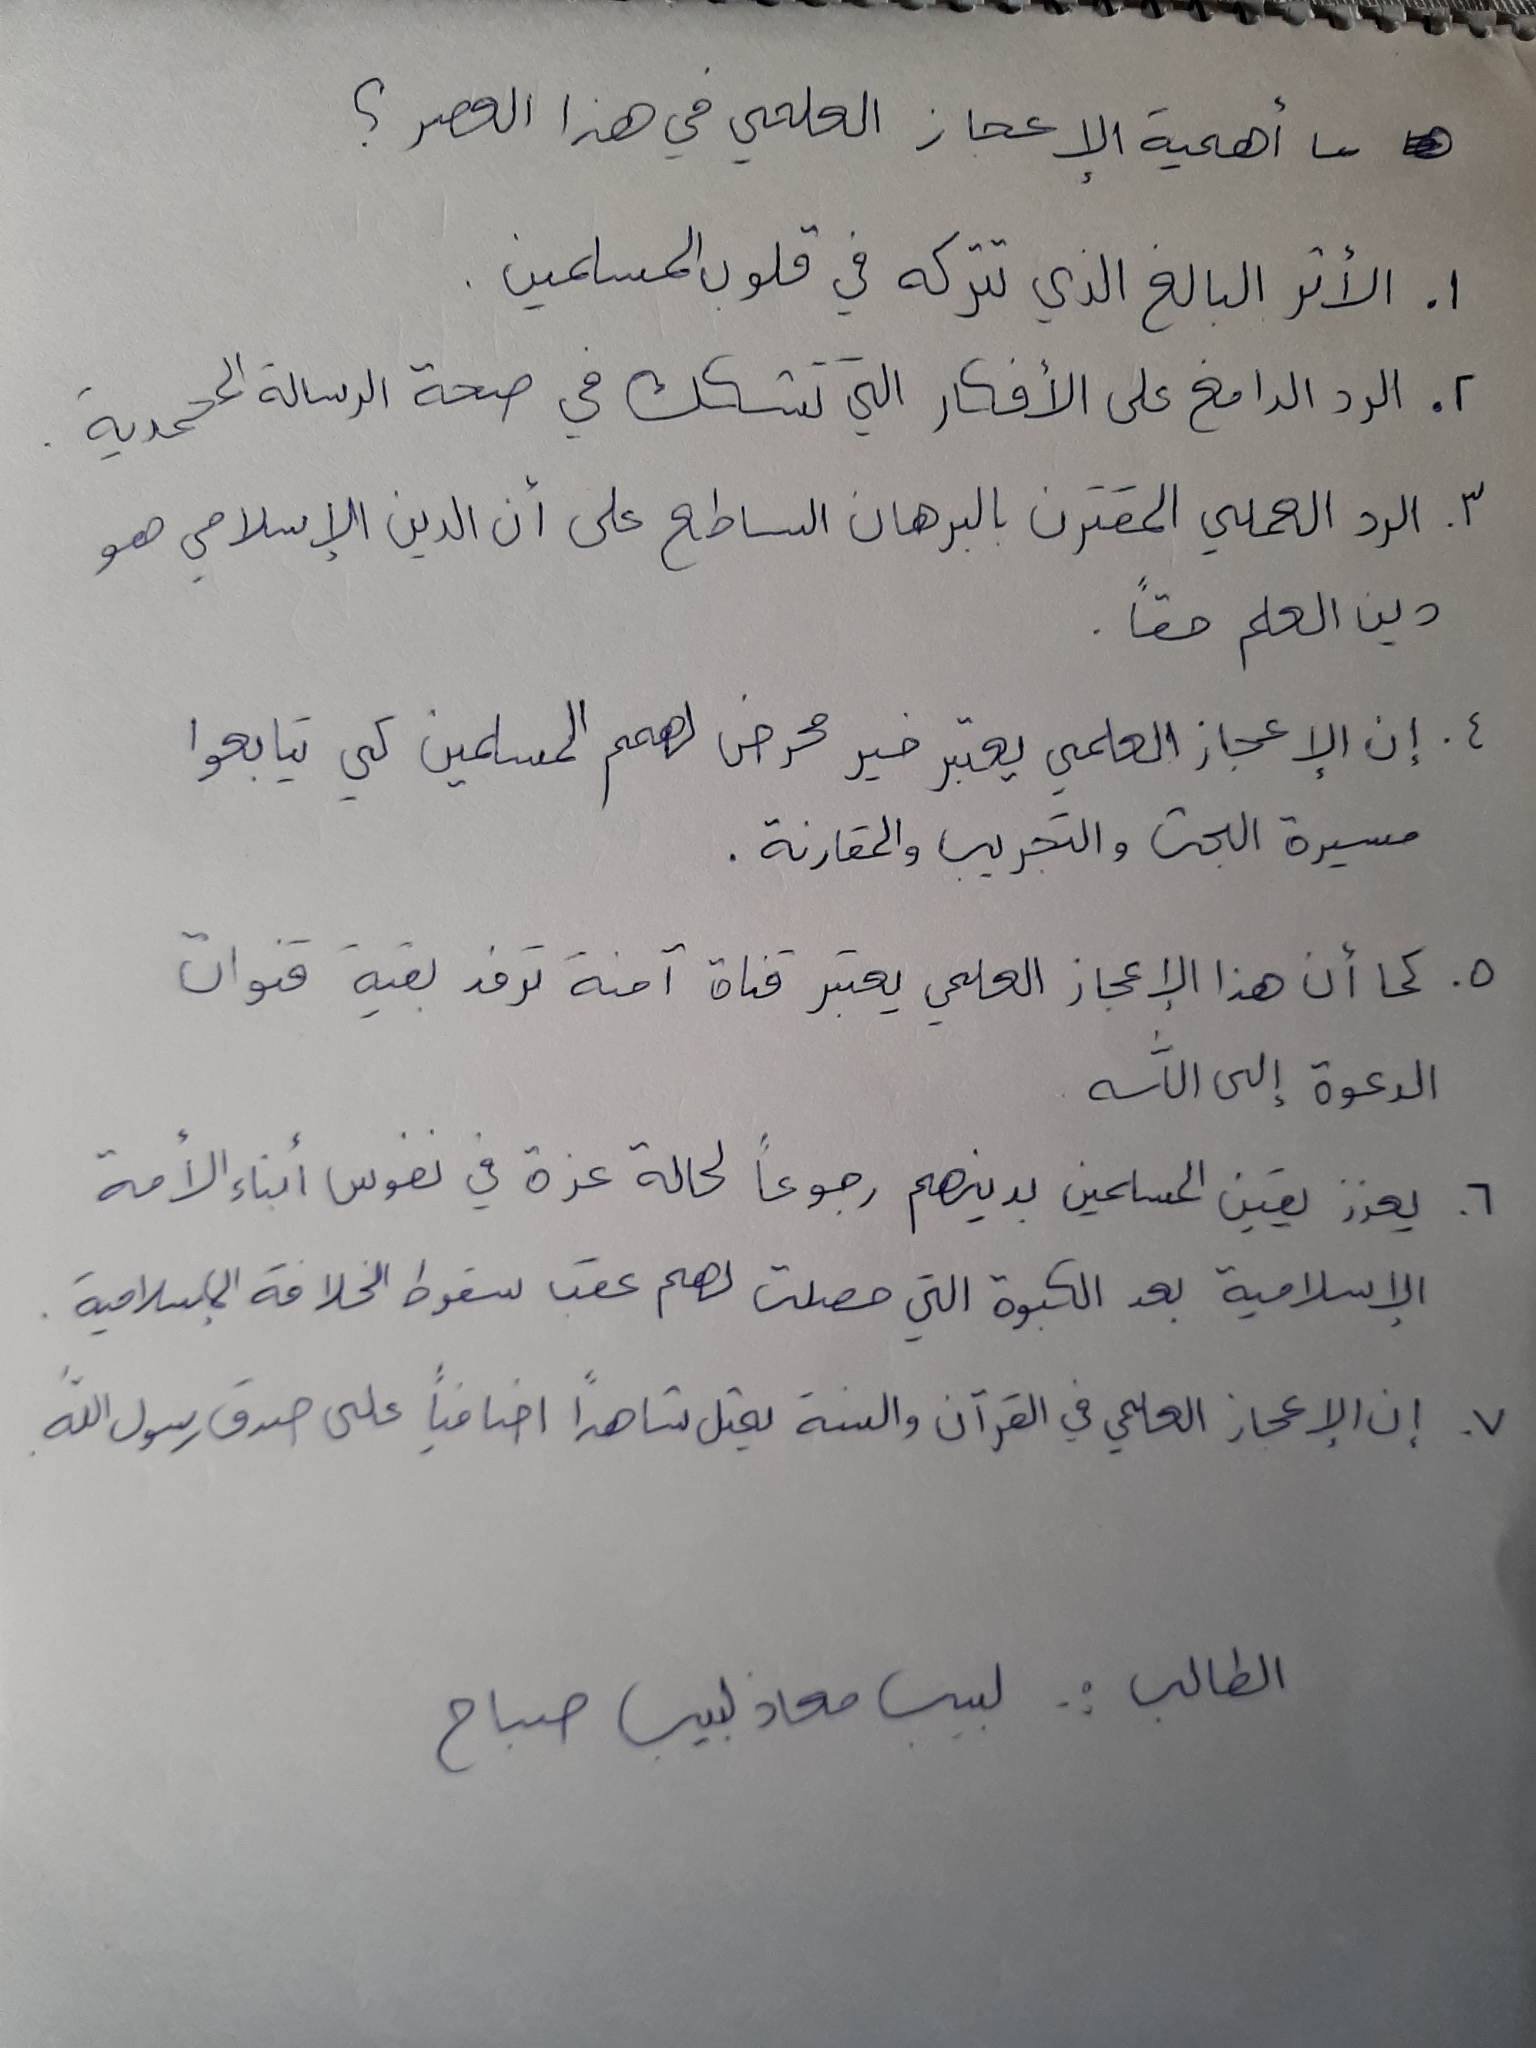 ما أهمية الإعجاز العلمي في هذا العصر ؟
١. الأثر البالغ الذي تتركه في قلوب المسلمين .
٢. الرد الدامغ على الأفكار التي تشكك في صحة الرسالة المحمدية .
٣. الرد العملي المقترن بالبرهان الساطع على أن الدين الإسلامي هو
دين العلم حقاً .
٤. إن الإعجاز العلمي يعتبر خير محرض لهمم المسلمين كي يتابعوا
مسيرة البحث والتجريب والمقارنة .
٥. كما أن هذا الإعجاز العلمي يعتبر قناة آمنة ترفد بقية قنوات
الدعوة إلى الله .
٦. يعزز يقين المسلمين بدينهم رجوعاً لحالة عزة في نفوس أبناء الأمة
الإسلامية بعد الكبوة التي حصلت لهم عقب سقوط الخلافة الإسلامية .
٧. إن الإعجاز العلمي في القرآن والسنة يمثل شاهداً اضافياً على صدق رسول الله.
الطالب :. لبيب معاذ لبيب صباح